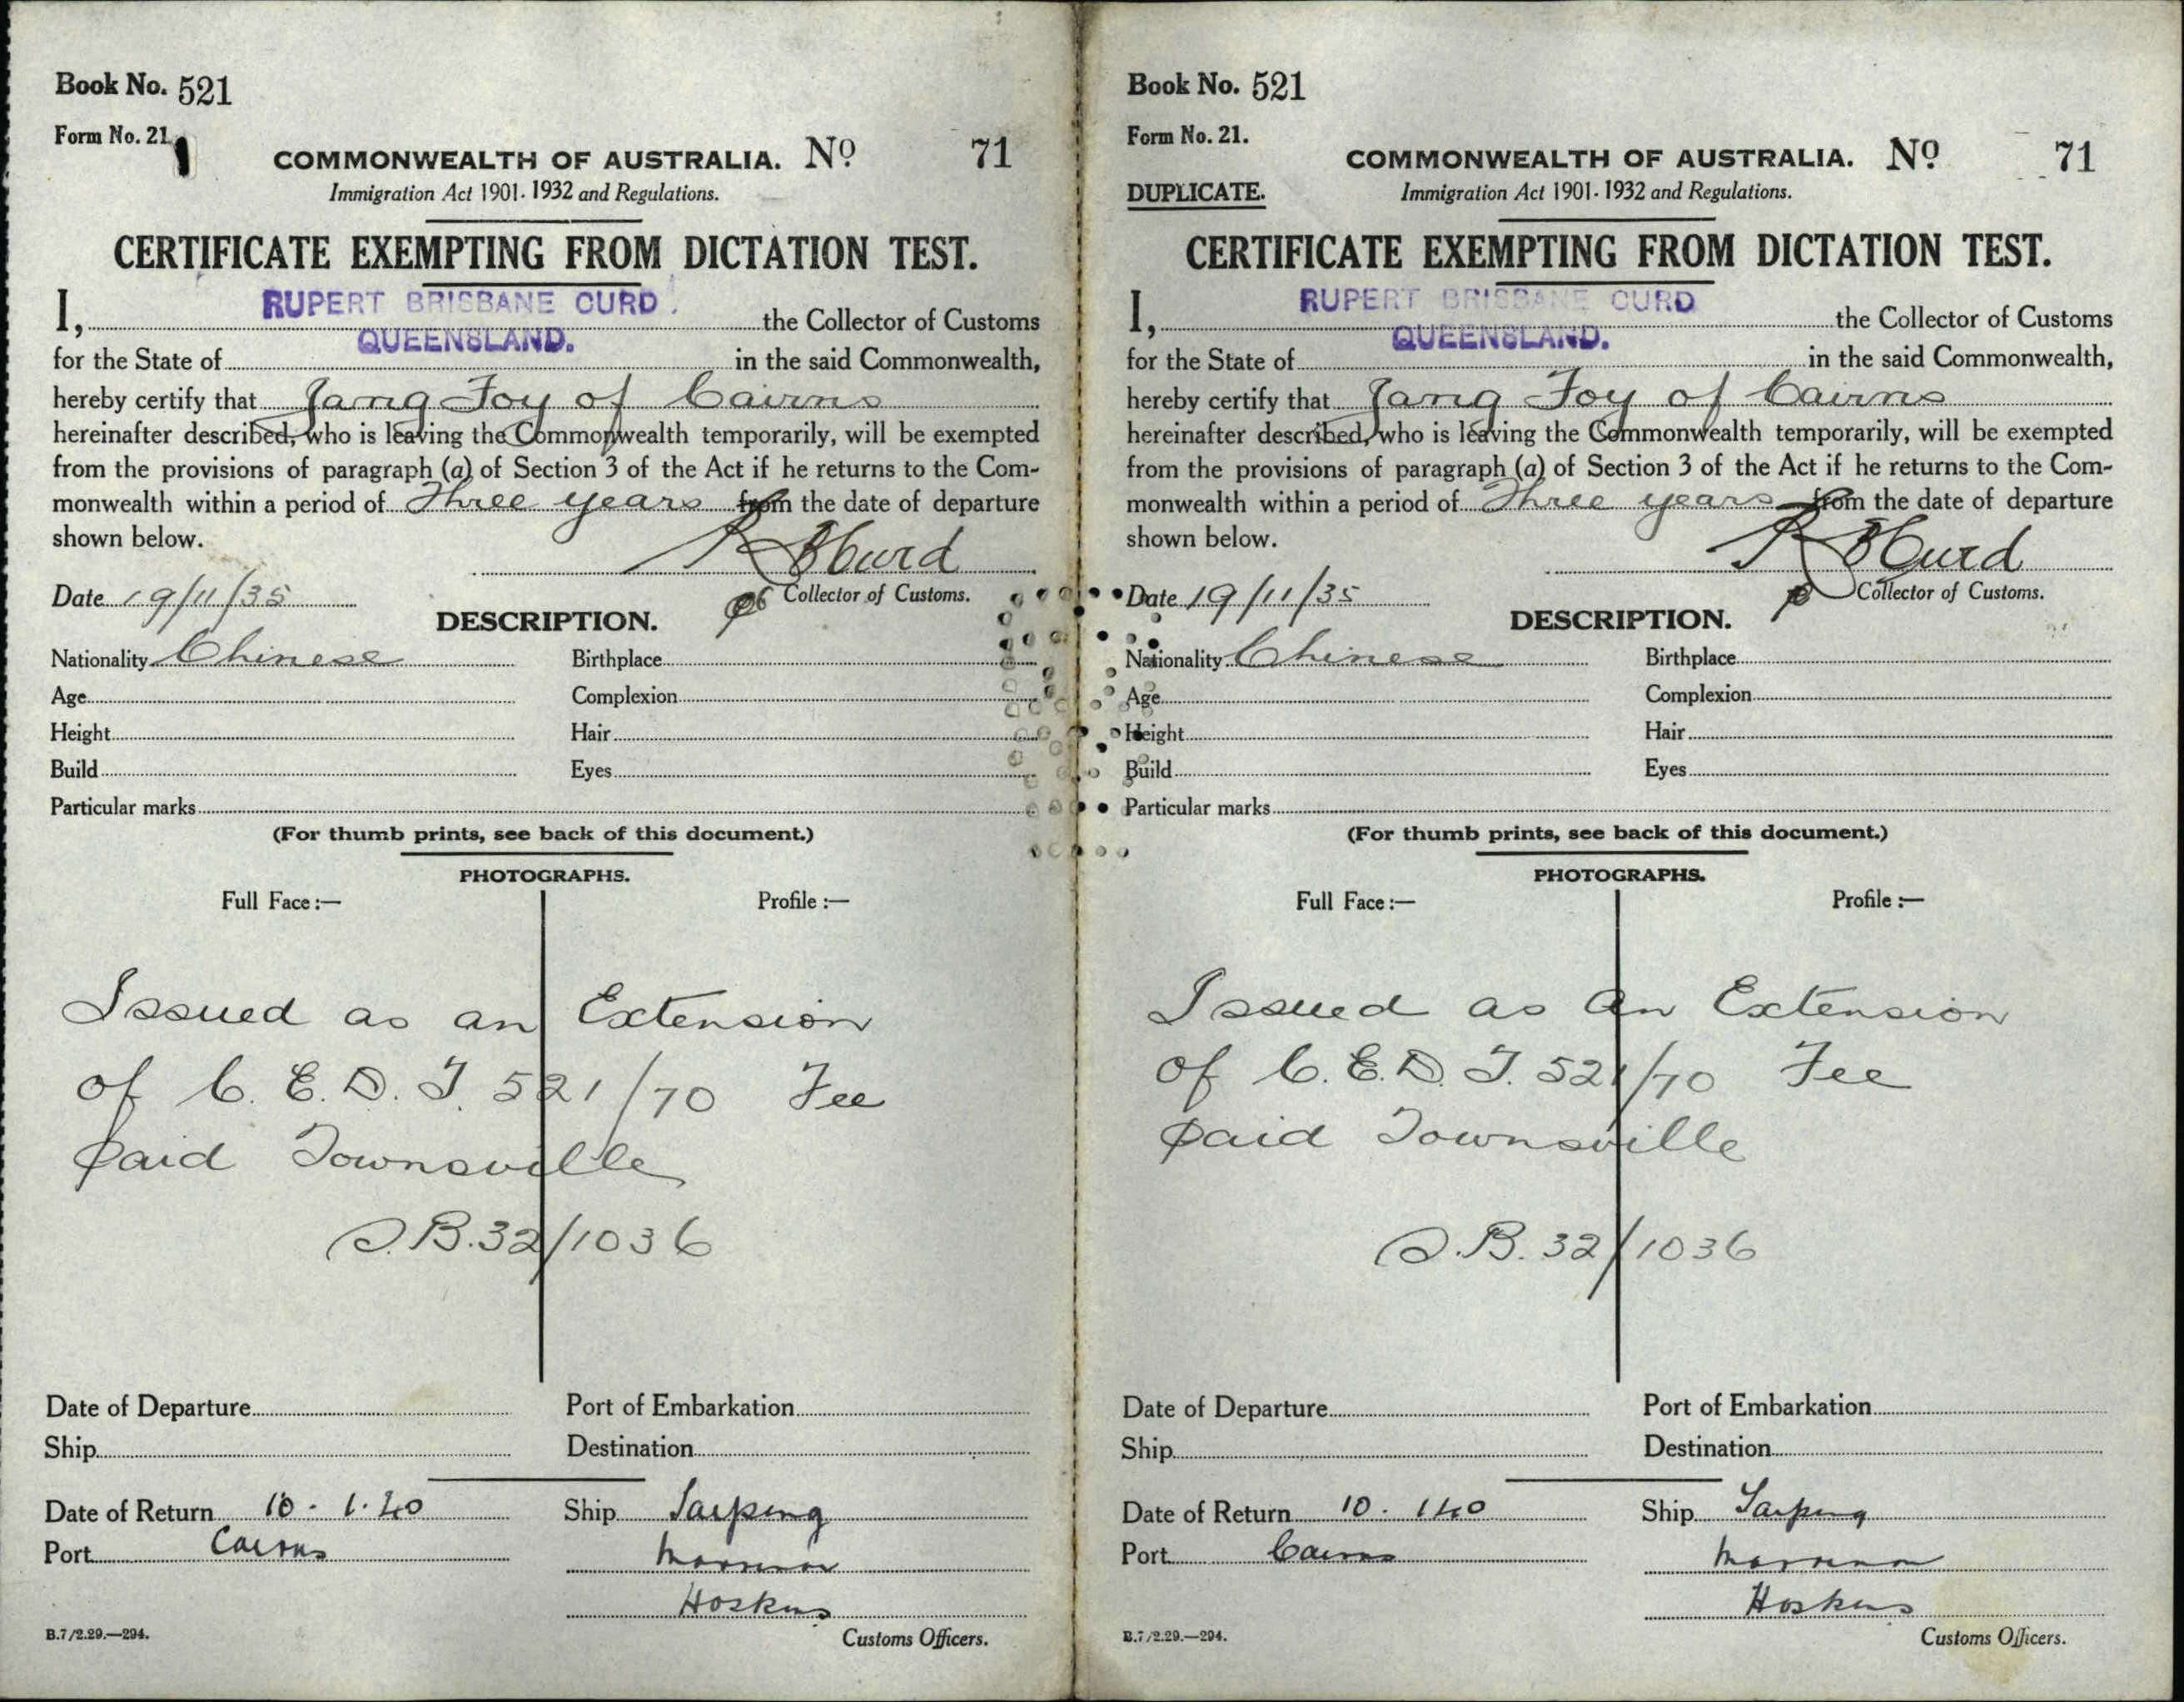 Book No. 521
Form No. 21.
COMMONWEALTH OF AUSTRALIA. No 71
Immigration Act 1901-1932 and Regulations.
CERTIFICATE EXEMPTING FROM DICTATION TEST.
I, RUPERT BRISBANE CURD. the Collector of Customs
for the State of QUEENSLAND. in the said Commonwealth,
hereby certify that Jang Foy of Cairns
hereinafter described, who is leaving the Commonwealth temporarily, will be exempted
from the provisions of paragraph (a) of Section 3 of the Act if he returns to the Com-
monwealth within a period of Three years from the date of departure
shown below.
R B Curd
Date 19/11/35 Collector of Customs.
DESCRIPTION.
Nationality Chinese Birthplace
Age Complexion
Height Hair
Build Eyes
Particular marks
(For thumb prints, see back of this document.)
PHOTOGRAPHS.
Full Face:— Profile:—
Issued as an Extension
of C. E. D. T. 521/70 Fee
paid Townsville
S.B.32/1036
Date of Departure Port of Embarkation
Ship Destination
Date of Return 10.1.40 Ship Taiping
Port Cairns
Hoskins
B.7/2.29.—294. Customs Officers.
Book No. 521
Form No. 21.
COMMONWEALTH OF AUSTRALIA. No 71
DUPLICATE. Immigration Act 1901-1932 and Regulations.
CERTIFICATE EXEMPTING FROM DICTATION TEST.
I, RUPERT BRISBANE CURD the Collector of Customs
for the State of QUEENSLAND. in the said Commonwealth,
hereby certify that Jang Foy of Cairns
hereinafter described, who is leaving the Commonwealth temporarily, will be exempted
from the provisions of paragraph (a) of Section 3 of the Act if he returns to the Com-
monwealth within a period of Three years from the date of departure
shown below.
R B Curd
Date 19/11/35 Collector of Customs.
DESCRIPTION.
Nationality Chinese Birthplace
Age Complexion
Height Hair
Build Eyes
Particular marks
(For thumb prints, see back of this document.)
PHOTOGRAPHS.
Full Face:— Profile:—
Issued as an Extension
of C. E. D. T. 521/70 Fee
paid Townsville
S.B. 32/1036
Date of Departure Port of Embarkation
Ship Destination
Date of Return 10.1.40 Ship Taiping
Port Cairns
Hoskins
B.7/2.29.—294. Customs Officers.